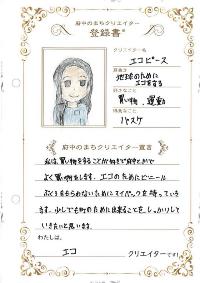 府中のまちクリエイター
登録書
クリエイター名
エコピース
地球のために
エコをする
好きなこと
買い物、運動
得意なこと
バスケ
府中のまちクリエイター宣言
私は、買い物をすることが好きで府中とかで
よく買い物をします。エコのためにビニール
ぶくろをもらわないためにマイバックを持っていき
ます。少しでも町のために出来ることを、しっかりして
いきたいと思います。
わたしは、
エコ クリエイターです!